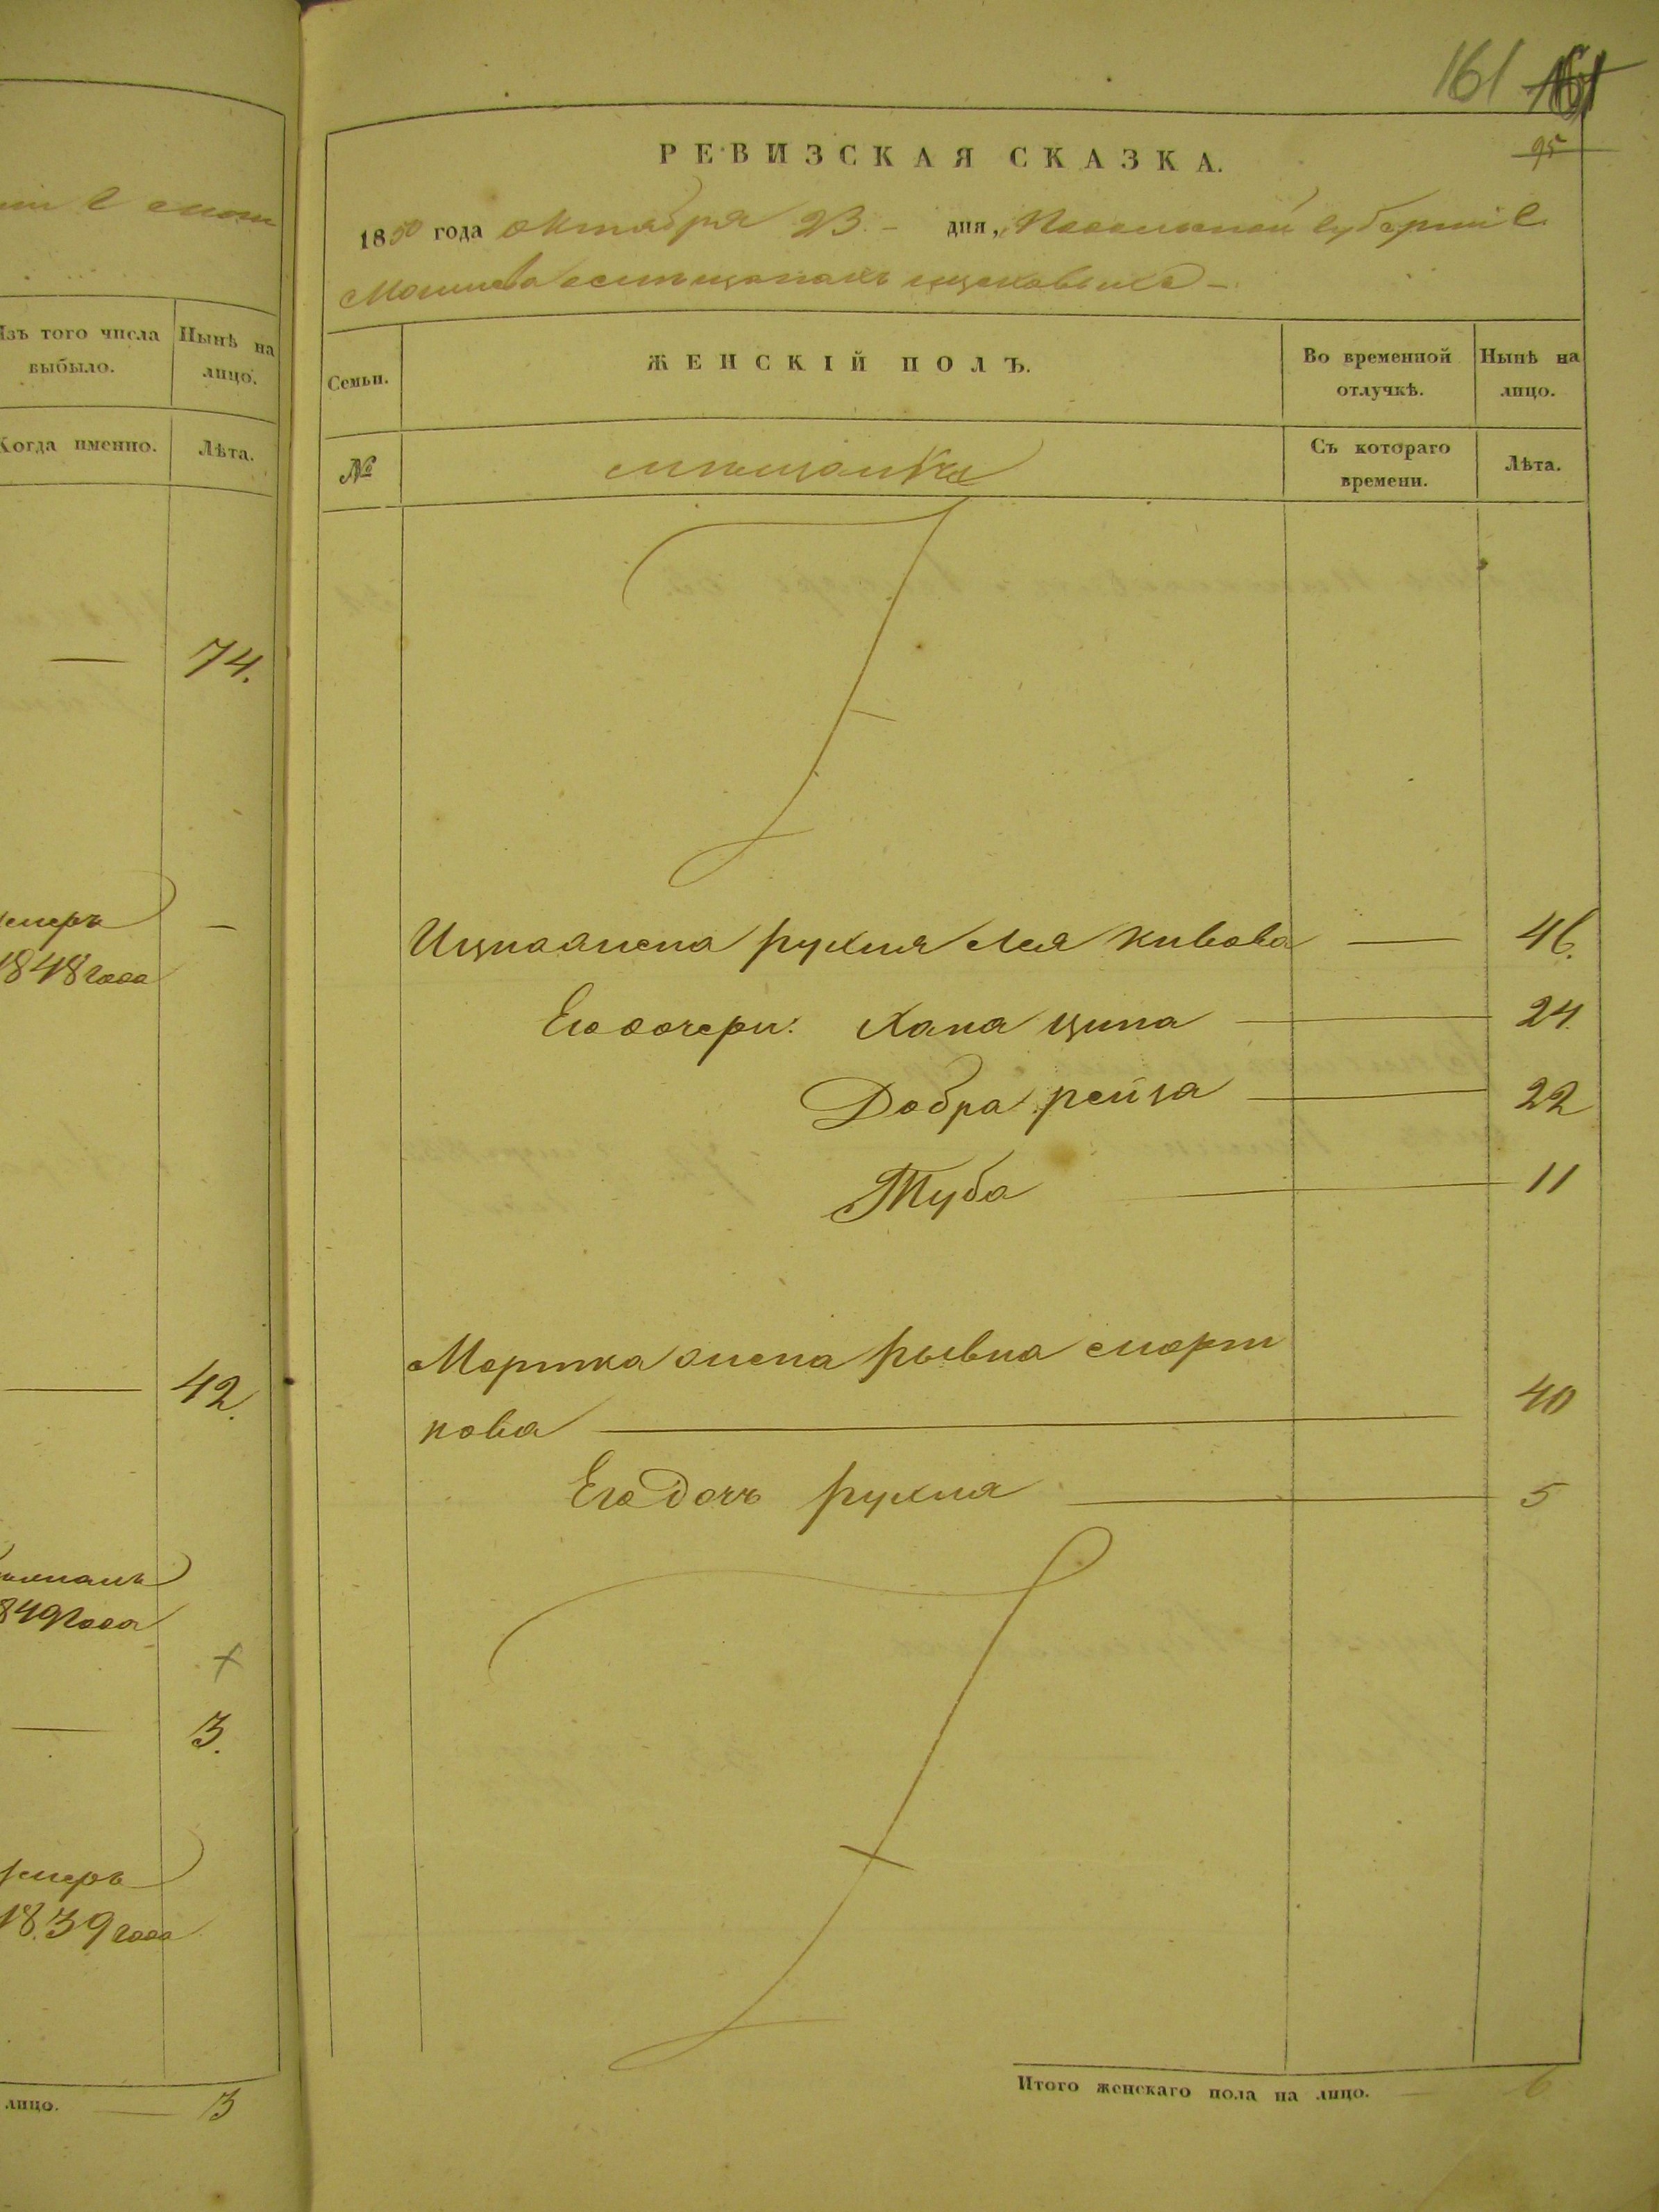 161 161
95
РЕВИЗСКАЯ СКАЗКА.
1850 года октября 23 - дня, Подольской губерніи
Могилева о мѣщанахъ
Изъ того числа выбыло.
Нынѣ на лицо.
Когда именно.
Лѣта.
Семьи.
ЖЕНСКІЙ ПОЛЪ.
Во временной отлучкѣ.
Нынѣ на лицо.
№
мѣщанки
Съ котораго времени.
Лѣта.
— 74.
умеръ —
1848 года
— 42.
1849 года
— 3.
умеръ
1839 года
лицо. — 3
Ицка жена рухля лея кивова — 46.
Его дочери: Хана ципа — 24.
Добра рейза — 22
Туба — 11
Мортка жена рывка сморт
кова — 40
Его Дочь рухля — 5
Итого женскаго пола на лицо. — 6